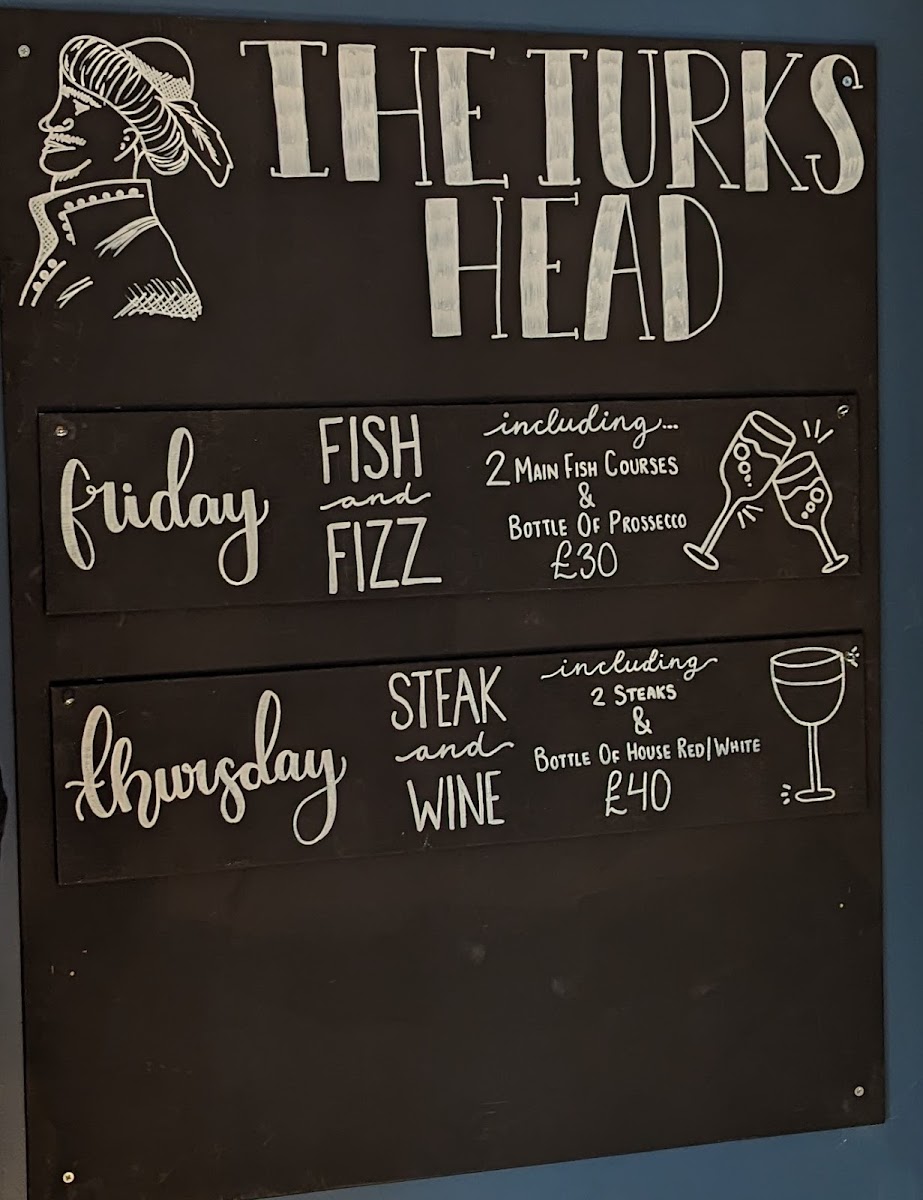 THE TURKS
HEAD
friday
FISH
and
FIZZ
including...
2 MAIN FISH COURSES
&
BOTTLE OF PROSSECCO
£30
thursday
STEAK
and
WINE
including
2 STEAKS
&
BOTTLE OF HOUSE RED/WHITE
£40